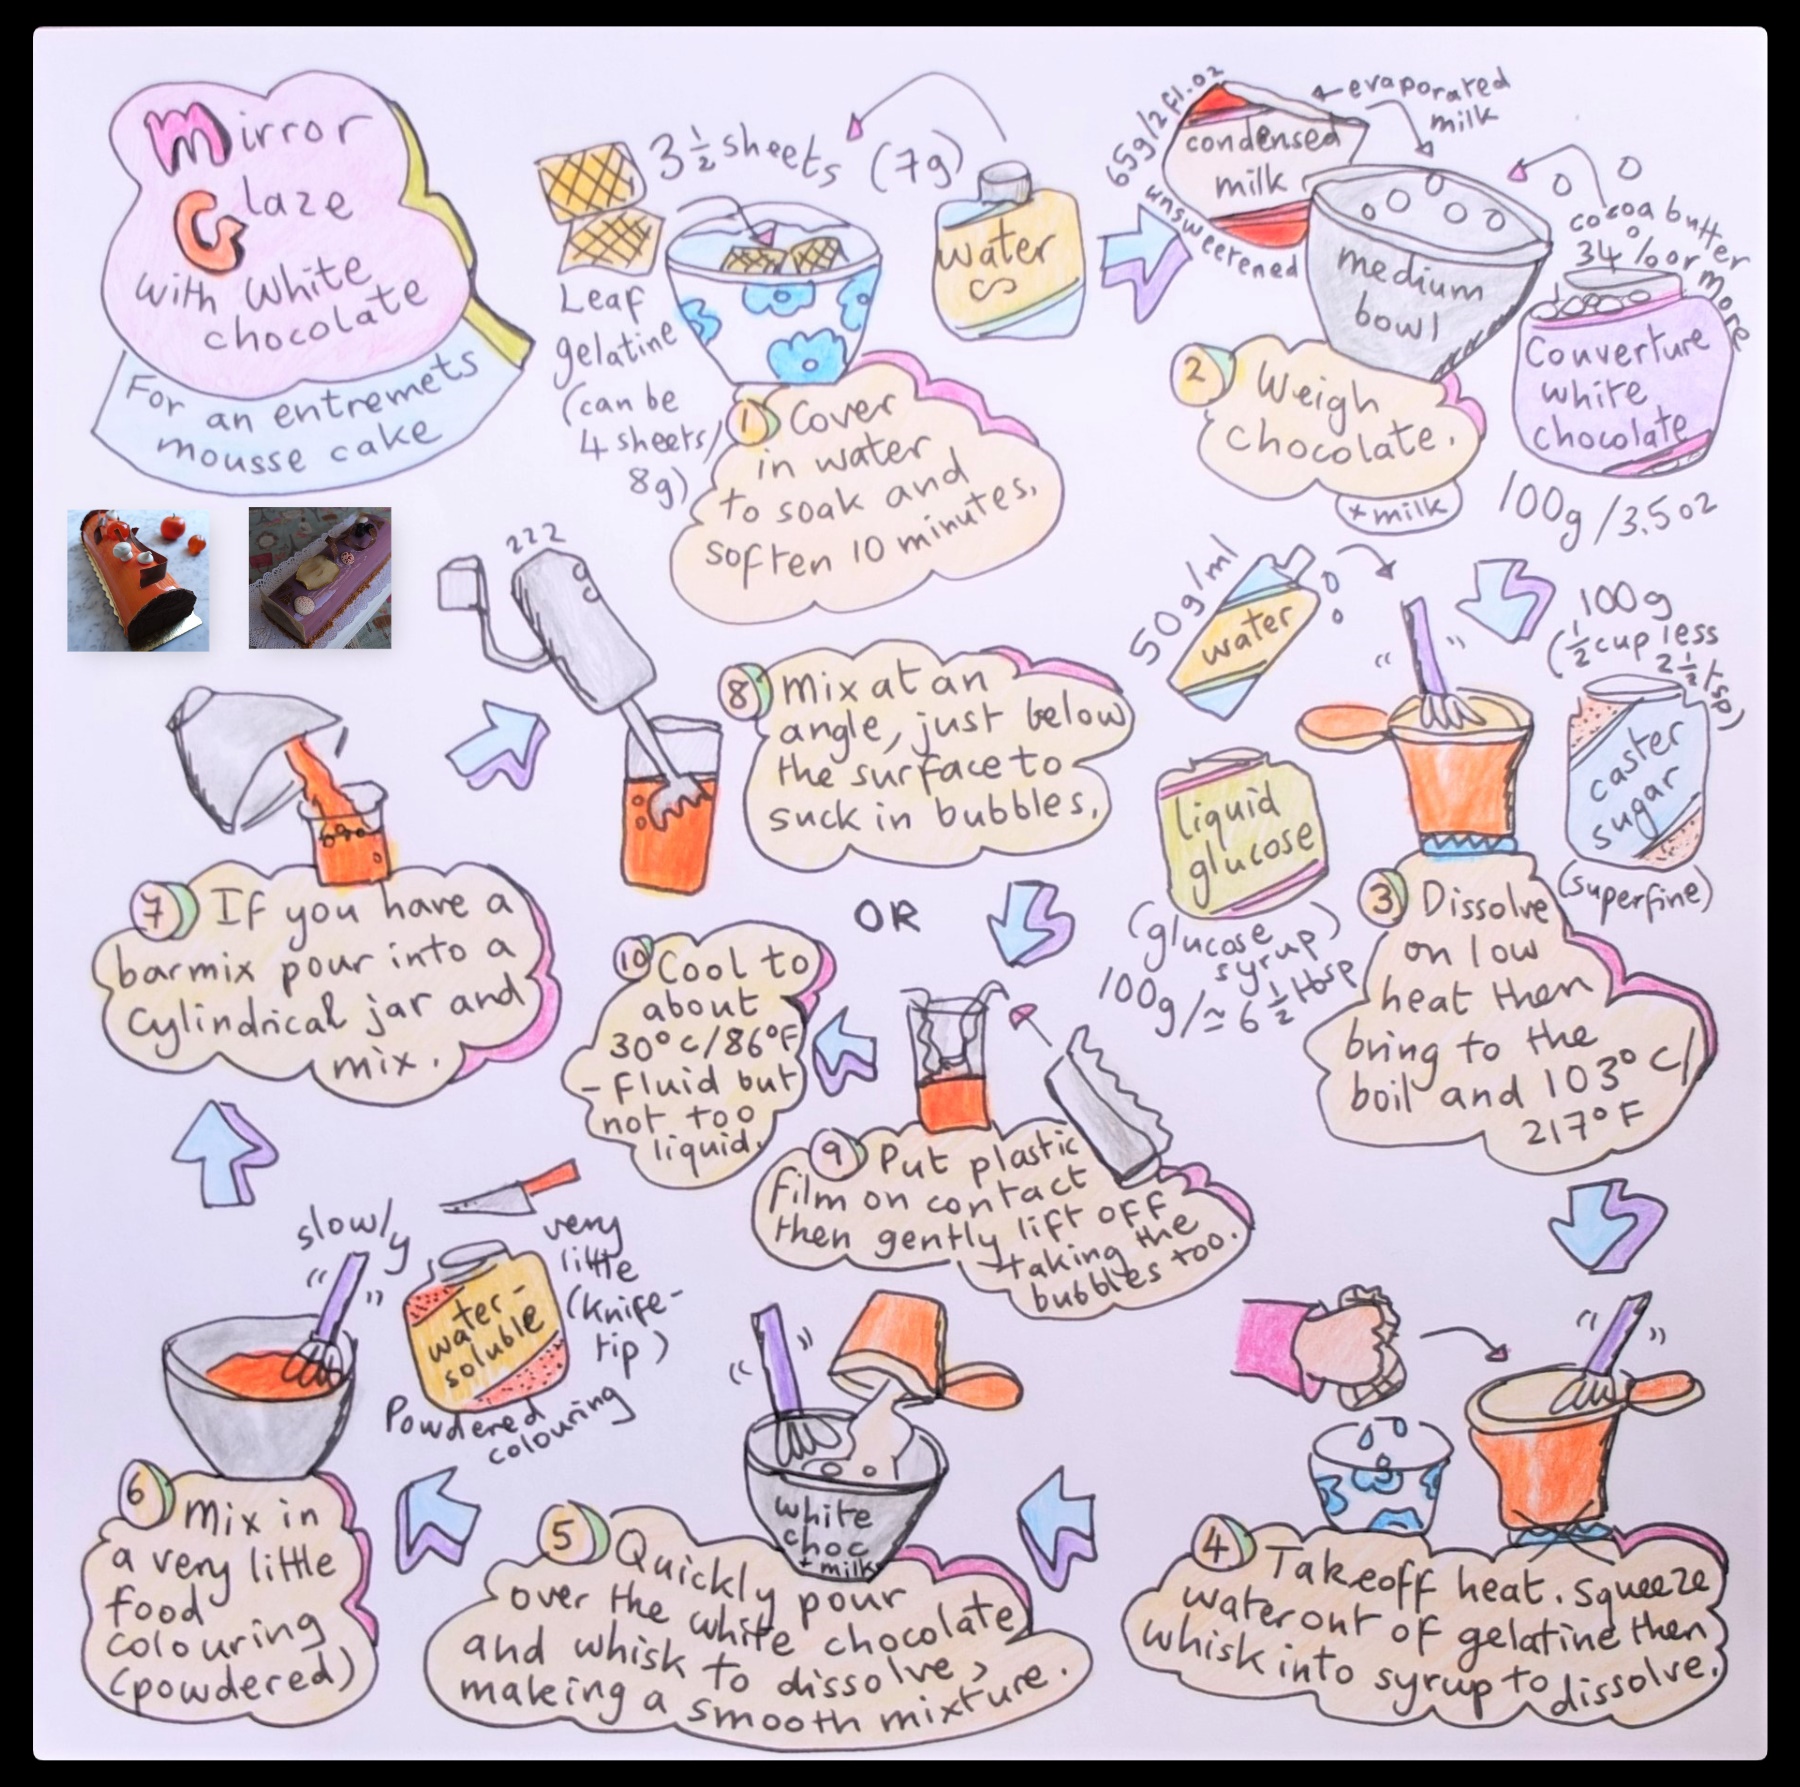 Mirror
Glaze
with White
chocolate
For an entremets
mousse cake
3 1/2 sheets (7g)
Leaf
gelatine
(can be
4 sheets/
8g)
water
1 Cover
in water
to soak and
soften 10 minutes.
65g/2fl.oz
unsweetened
condensed
milk
evaporated
milk
medium
bowl
cocoa butter
34% or more
Couverture
white
chocolate
100g/3.5oz
2 Weigh
chocolate.
+ milk
50g/ml
water
100g
(1/2 cup less
2 1/2 tsp)
caster
sugar
(superfine)
liquid
glucose
(glucose
syrup)
100g/≃ 6 1/2 tbsp
3 Dissolve
on low
heat then
bring to the
boil and 103°C/
217°F
4 Take off heat. Squeeze
water out of gelatine then
whisk into syrup to dissolve.
white
choc
+ milk
5 Quickly pour
over the white chocolate
and whisk to dissolve,
making a smooth mixture.
slowly
very
little
(knife-
tip)
water-
soluble
Powdered
colouring
6 Mix in
a very little
food
colouring
(powdered)
7 If you have a
barmix pour into a
cylindrical jar and
mix.
zzz
8 Mix at an
angle, just below
the surface to
suck in bubbles.
OR
9 Put plastic
film on contact
then gently lift off
taking the
bubbles too.
10 Cool to
about
30°C/86°F
- fluid but
not too
liquid.